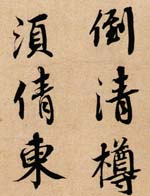 倒清樽
須倩東